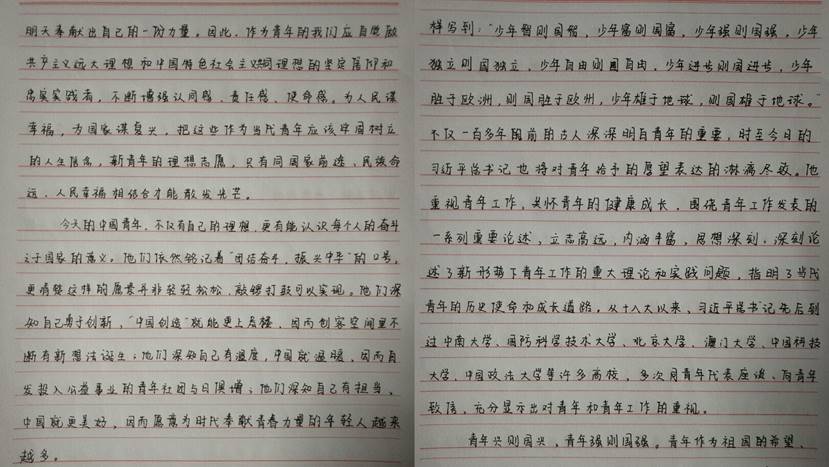 明天奉献出自己的一份力量。因此，作为青年的我们应自觉做
共产主义远大理想和中国特色社会主义共同理想的坚定信仰和
忠实实践者，不断增强认同感、责任感、使命感。为人民谋
幸福，为国家谋复兴，把这些作为当代青年应该牢固树立
的人生信念，新青年的理想志愿，只有同国家前途、民族命
运、人民幸福相结合才能散发光芒。
今天的中国青年，不仅有自己的理想，更有能认识每个人的奋斗
之于国家的意义。他们依然铭记着“团结奋斗，振兴中华”的口号，
更清楚这样的愿景并非轻轻松松、敲锣打鼓可以实现。他们深
知自己勇于创新，“中国创造”就能更上层楼，因而创客空间里不
断有新想法诞生；他们深知自己有温度，中国就温暖，因而自
发投入公益事业的青年社团与日俱增；他们深知自己有担当，
中国就更美好，因而愿意为时代奉献青春力量的年轻人越来
越多。
样写到：“少年智则国智，少年富则国富，少年强则国强，少年
独立则国独立，少年自由则国自由，少年进步则国进步，少年
胜于欧洲，则国胜于欧洲，少年雄于地球，则国雄于地球。”
不仅一百多年的前的古人深深明白青年的重要，时至今日的
习近平总书记也将对青年给予的愿望表达的淋漓尽致。他
重视青年工作，关怀青年的健康成长，围绕青年工作发表的
一系列重要论述，立志高远，内涵丰富，思想深刻。深刻论
述了新形势下青年工作的重大理论和实践问题，指明了当代
青年的历史使命和成长道路。从十八大以来，习近平总书记先后到
过中南大学、国防科学技术大学、北京大学、澳门大学、中国科技
大学、中国政法大学等许多高校，多次同青年代表座谈、向青年
致信，充分显示出对青年和青年工作的重视。
青年兴则国兴，青年强则国强。青年作为祖国的希望、